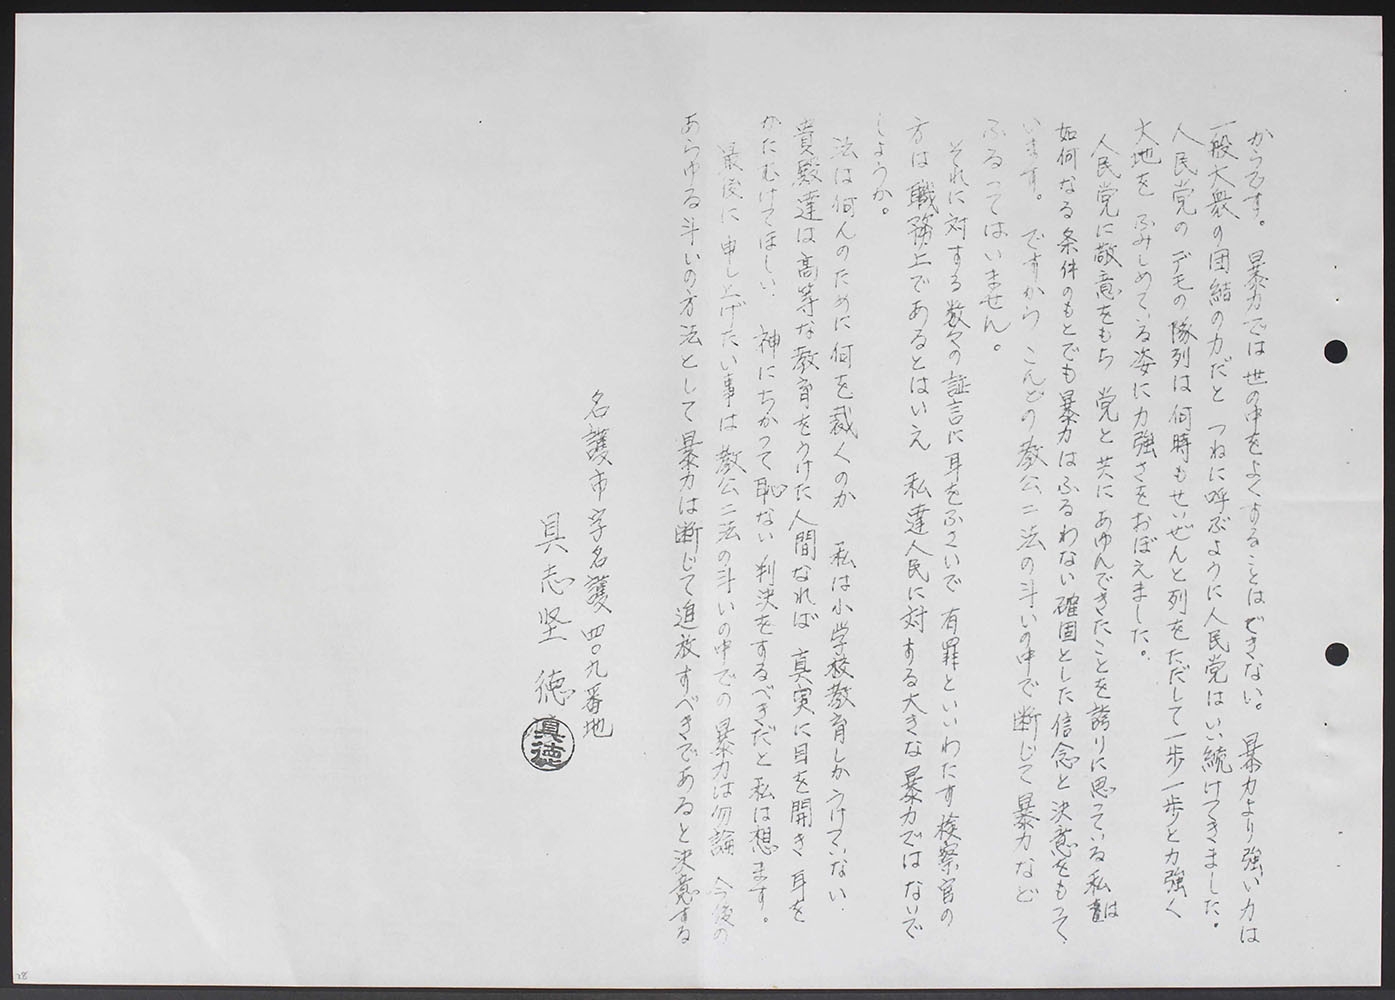 からです。暴力では世の中をよくすることはできない。暴力より強い力は
一般大衆の団結の力だと つねに呼ぶように人民党はいい続けてきました。
人民党の デモの隊列は何時もせいぜんと列をただして一歩一歩と力強く
大地を ふみしめている姿に力強さをおぼえました。
人民党に敬意をもち 党と共に あゆんできたことを誇りに思っている私は
如何なる条件のもとでも暴力はふるわない確固とした信念と決意をもって
います。 ですから こんどの教公二法の斗いの中で断じて暴力など
ふるってはいません。
それに対する数々の証言に耳をふさいで有罪といいわたす検察官の
方は職務上であるとはいえ 私達人民に対する大きな暴力ではないで
しょうか。
法は何んのために何を裁くのか 私は小学校教育しかうけていない.
貴殿達は高等な教育をうけた人間なれば 真実に目を開き耳を
かたむけてほしい. 神にちかって恥ない判決をするべきだと私は想ます。
最後に申し上げたい事は教公二法の斗いの中での暴力は勿論 今後の
あらゆる斗いの方法として暴力は断じて追放すべきであると決意する
名護市字名護四〇九番地
具志堅 徳
眞徳
28